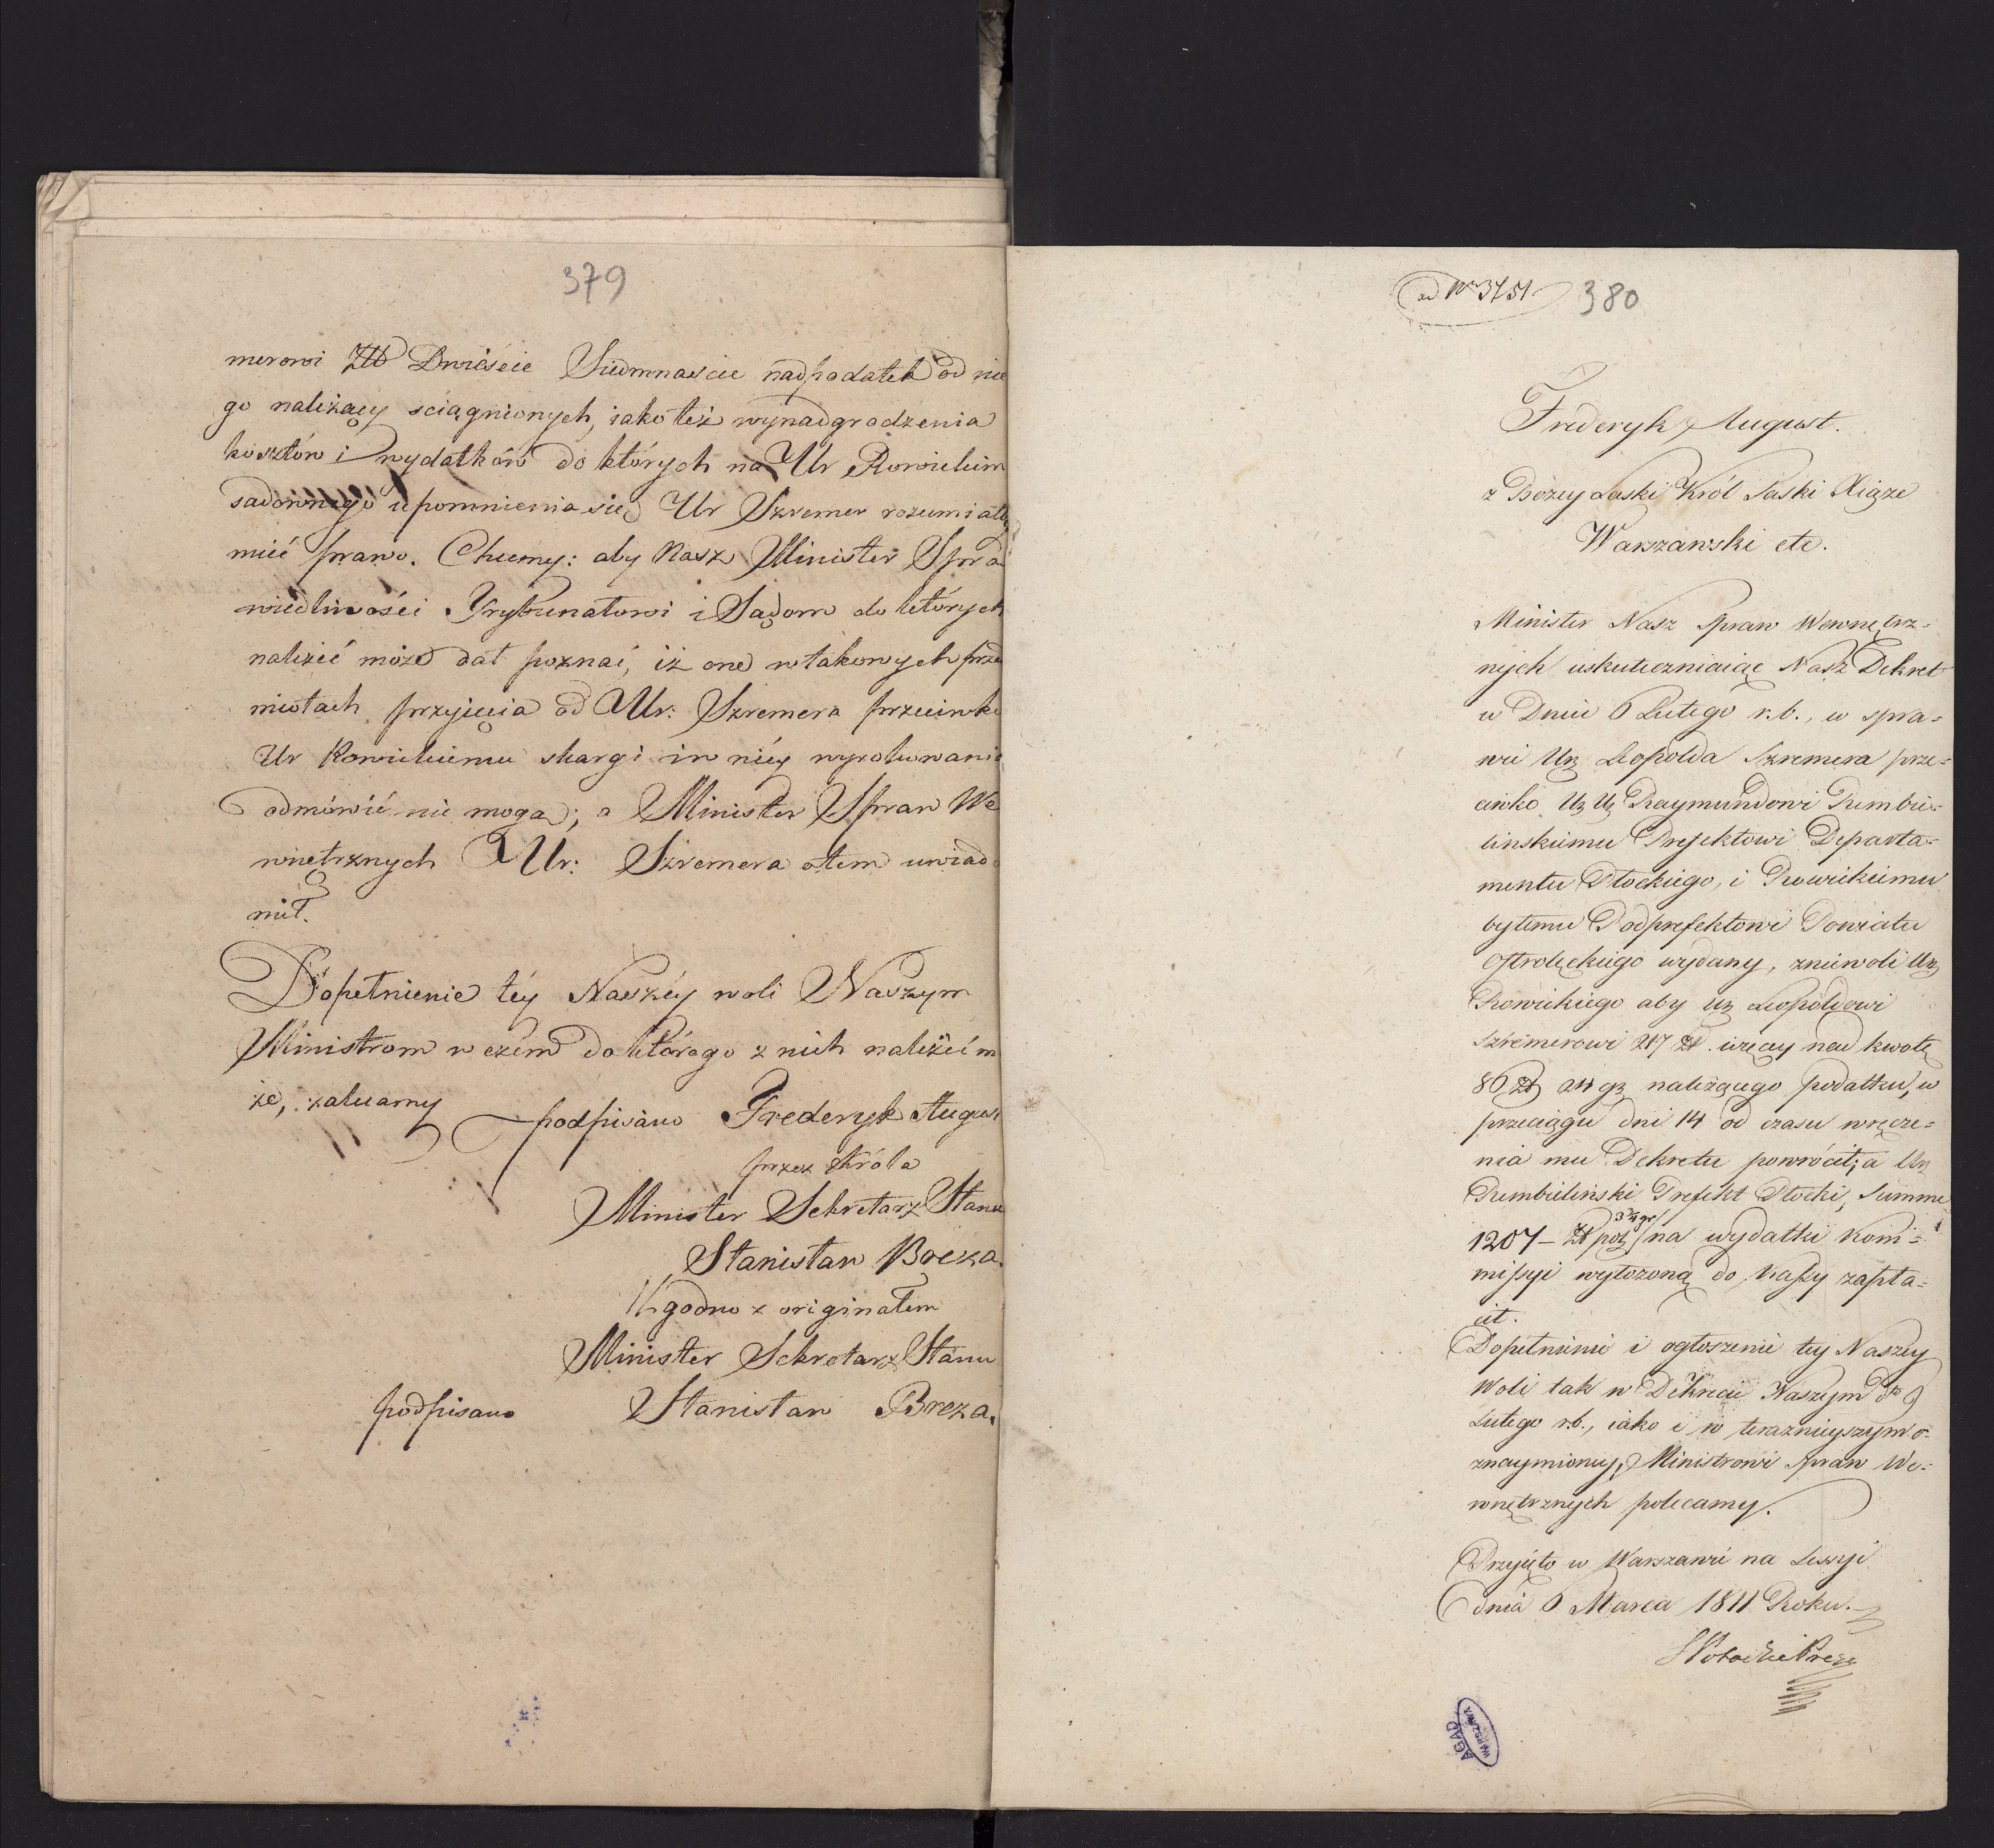 379
merowi Złł Dwieście Siedmnaście nad podatek od nie
go należący sciągnionych, iako też wynadgrodzenia
kosztów i wydatków do których na Ur Rowickim
sadownego upomnienia się Ur Szremer rozumiałby
mieć prawo. Chcemy: aby Nasz Minister Spra
wiedliwości Trybunałowi i Sądom do których
należeć może dał poznać, iż one w takowych przed
miotach przyjęcia od Ur: Szremera przeciwko
Ur Rowickiemu skargi i w niéy wyrokowania
odmówić nie mogą; a Minister Spraw We
wnętrznych Ur: Szremera o tem uwiado
mił.
Dopełnienie téy Naszéy woli Naszym
Ministrom w czém do którego z nich należeć m
że, zalecamy
podpisano Frederyk August
przez Króla
Minister Sekretarz Stanu
Stanisław Breza.
Zgodno z originałem
Minister Sekretarz Stanu
podpisano Stanisław Breza.
ad Nr 3751 380
Frideryk August.
z Bożey Łaski Król Saski Xiąże
Warszawski etc.
Minister Nasz Spraw Wewnętrz=
nych uskuteczniaiąc Nasz Dekret
w Dniu 6 Lutego r.b., w spra=
wie Ur Leopolda Szremera prze=
ciwko Ur Ur Raymundowi Rembie=
linskiemu Prefektowi Departa=
mentu Płockiego, i Rowickiemu
byłemu Podprefektowi Powiatu
Ostrołęckiego wydany, zniewoli Ur
Rowickiego aby Ur Leopoldowi
Szremerowi 217 zł. więcey nad kwotę
86 zł 24 gr należącego podatku, w
przeciągu dni 14 od czasu wręcze=
nia mu Dekretu powrócił; a Ur
Rembieliński Prefekt Płocki, Summę
1207 – zł pol 3¾ gr na wydatki Kom=
missyi wyłożoną do kassy zapła=
cił.
Dopełnienie i ogłoszenie tey Naszey
Woli tak w Dekrecie Naszym d° 6
Lutego r.b., iako i w teraznieyszym o=
znaymioney, Ministrowi Spraw We=
wnętrznych polecamy.
Przyięto w Warszawie na Sessyi
dnia 6 Marca 1811 Roku.
S Potocki Prezes
AGAD
WARSZAWA